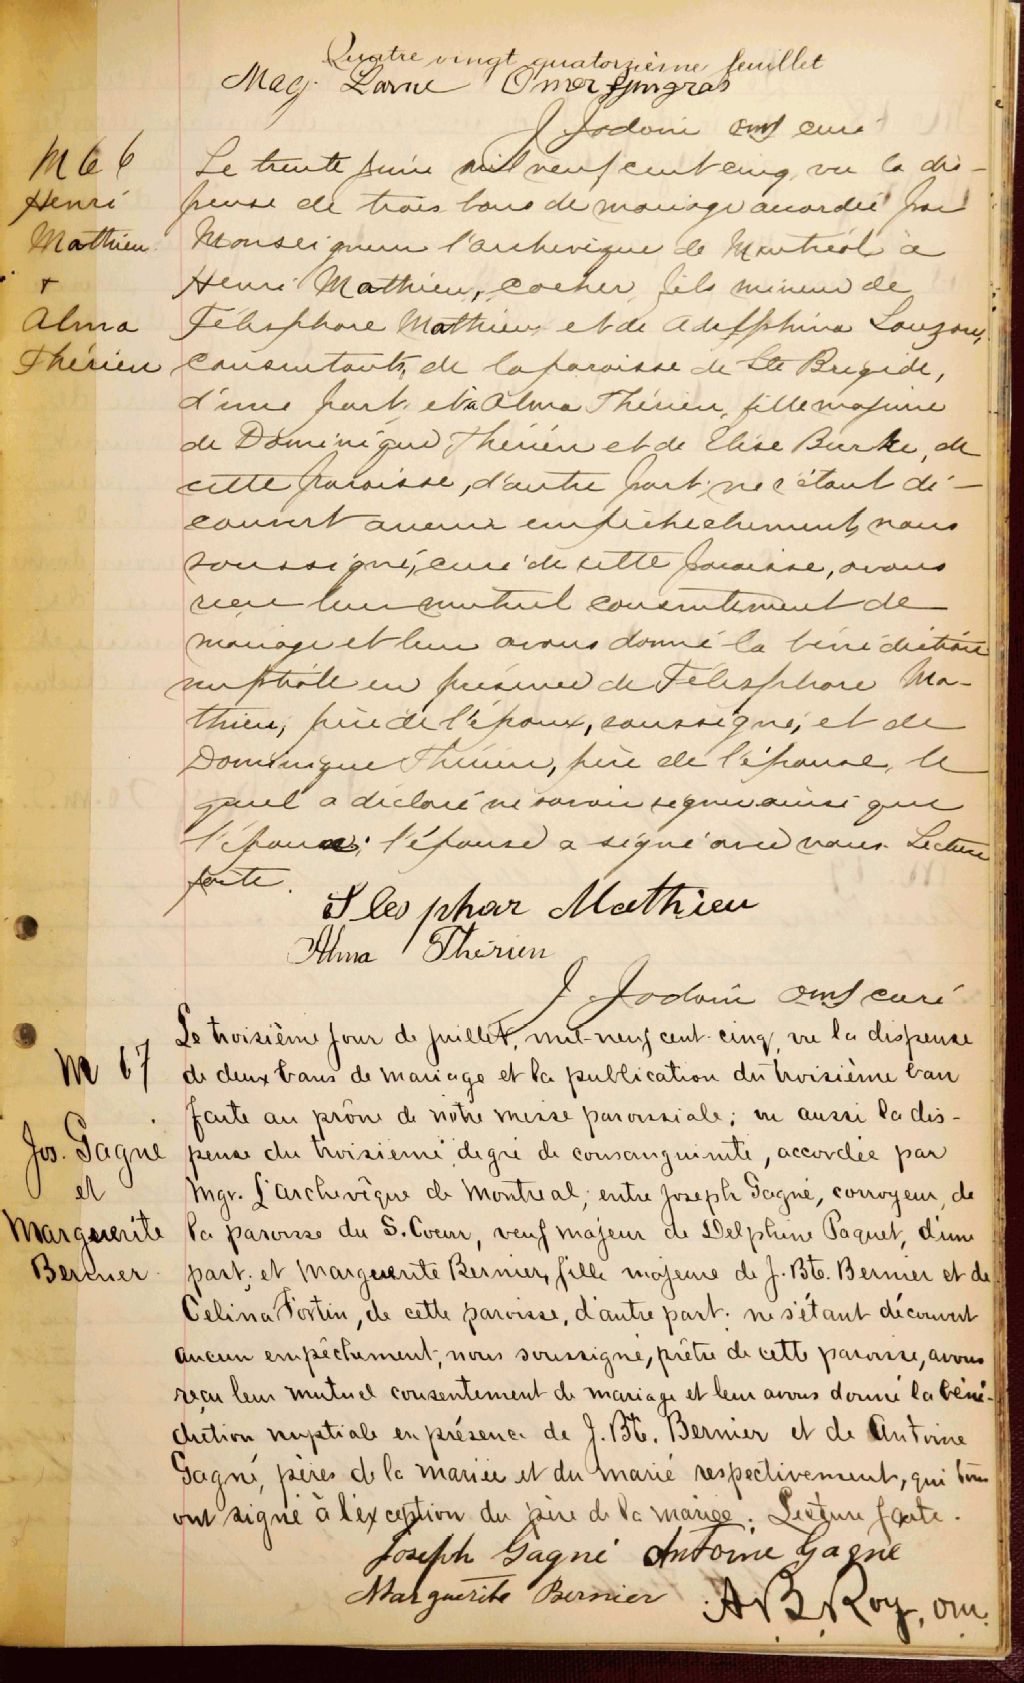 Quatre vingt quatorzième feuillet
Mag. Larue Omer Gingras
J Jodoin omj curé
M 66
Henri
Mathieu
+
Alma
Thérien
Le trente juin mil neuf cent cinq, vu la dis-
pense de trois bans de mariage accordée par
Monseigneur l'archevêque de Montréal à
Henri Mathieu, cocher, fils mineur de
Télesphore Mathieu et de Adelphina
consentants, de la paroisse de Ste Brigide,
d'une part, et à Alma Thérien, fille majeure
de Dominique Thérien et de Elise Burke, de
cette paroisse, d'autre part; ne s'étant dé-
couvert aucun empêchechement, nous
soussigné, curé de cette paroisse, avons
reçu leur mutuel consentement de
mariage et leur avons donné la bénédiction
nuptiale en présence de Télesphore Ma-
thieu, père de l'époux, soussigné, et de
Dominique Thérien, père de l'épouse, le
quel a déclaré ne savoir signer ainsi que
l'époux; l'épouse a signé avec nous. Lecture
faite.
Mathieu
Alma Thérien
J. Jodoin omj curé
M 67
Jos. Gagné
et
Marguerite
Bernier
Le troisième jour de juillet, mil-neuf cent-cinq, vu la dispense
de deux bans de mariage et la publication du troisième ban
faite au prône de notre messe paroissiale; vu aussi la dis-
pense du troisième degré de consanguinité, accordée par
Mgr. L'archevêque de Montreal; entre Joseph Gagné, corroyeur, de
la paroisse du S. Coeur, veuf majeur de Delphine Paquet, d'une
part; et Marguerite Bernier, fille majeure de J. Bte. Bernier et de
Célina Fortin, de cette paroisse, d'autre part. ne s'étant découvert
aucun empêchement, nous soussigné, prêtre de cette paroisse, avons
reçu leur mutuel consentement de mariage et leur avons donné la béné-
diction nuptiale en présence de J. Bte. Bernier et de Antoine
Gagné, pères de la mariée et du marié respectivement, qui tous
ont signé à l'exception du père de la mariée. Lecture faite.
Joseph Gagné Antoine Gagne
Marguerite Bernier A B Roy, om.